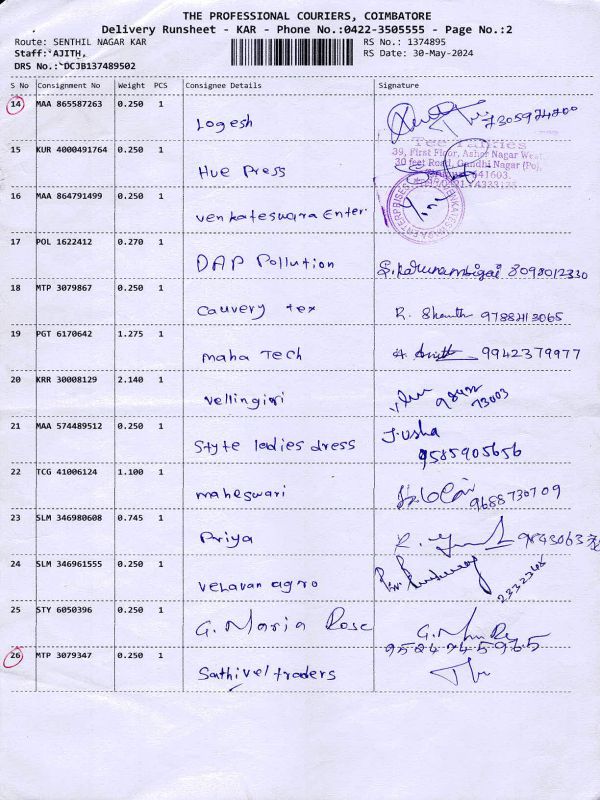 THE PROFESSIONAL COURIERS, COIMBATORE
Delivery Runsheet - KAR - Phone No.:0422-3505555 - Page No.:2
Route: SENTHIL NAGAR KAR RS No.: 1374895
Staff: AJITH, RS Date: 30-May-2024
DRS No.: DCJB137489502
S No Consignment No Weight PCS Consignee Details Signature
14 MAA 865587263 0.250 1 Logesh
15 KUR 4000491764 0.250 1 Hue Press
39, First Floor, Asher Nagar West,
30 feet Road, Gandhi Nagar (Po),
641603.
16 MAA 864791499 0.250 1 venkateswara Enter
17 POL 1622412 0.270 1 DAP Pollution S. Karunambigai 8098012330
18 MTP 3079867 0.250 1 Cauvery tex R. 9788413065
19 PGT 6170642 1.275 1 Maha Tech 9942379977
20 KRR 30008129 2.140 1 vellingiri 98422 73003
21 MAA 574489512 0.250 1 Style ladies dress J. Usha
9585905656
22 TCG 41006124 1.100 1 maheswari 9688730709
23 SLM 346980608 0.745 1 Priya
24 SLM 346961555 0.250 1 velavan agro
25 STY 6050396 0.250 1 G. Maria Rose
9524745965
26 MTP 3079347 0.250 1 Sathivel traders